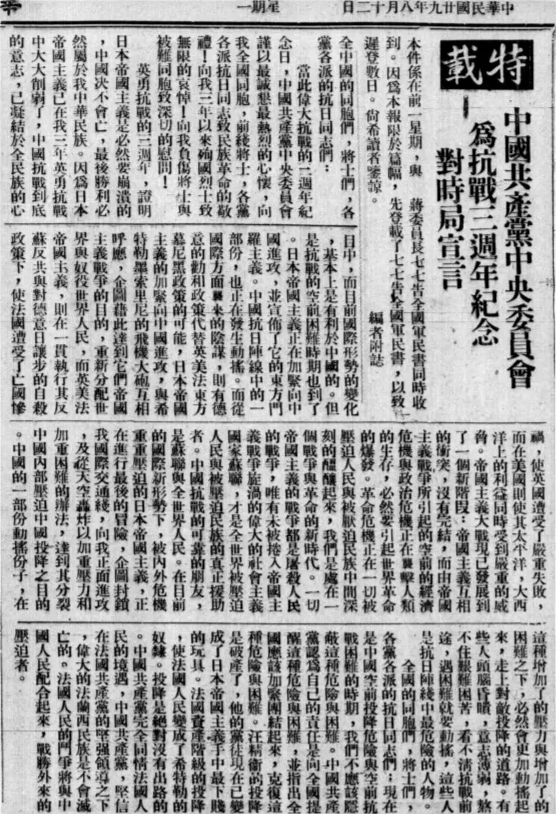 中華民國廿九年八月十二日
星期一
特載
中國共產黨中央委員會
爲抗戰三週年紀念
對時局宣言
本件係在前一星期，與　蔣委員長七七告全國軍民書同時收
到。因爲本報限於篇幅，先登載了七七告全國軍民書，以致
遲登數日。尚希讀者鑒諒。
編者附誌
全中國的同胞們，將士們，各
黨各派的抗日同志們：
當此偉大抗戰的三週年紀
念日，中國共產黨中央委員會
謹以最誠懇最熱烈的心懷，向
我全國同胞，前綫將士，各黨
各派抗日同志致民族革命的敬
禮！向我三年以來殉國烈士致
無限的哀悼！向我負傷將士與
被難同胞致深切的慰問！
英勇抗戰的三週年，證明
日本帝國主義是必然要崩潰的
，中國決不會亡，最後勝利必
然屬於我中華民族。因爲日本
帝國主義已在我三年英勇抗戰
中大大削弱了，中國抗戰到底
的意志，已凝結於全民族的心
目中，而目前國際形勢的變化
，基本上是有利於中國的。但
是抗戰的空前困難時期也到了
。日本帝國主義正在加緊向中
國進攻，並宣佈了它的東方門
羅主義。中國抗日陣線中的一
部份，也正在發生動搖。而從
國際方面襲來的陰謀，則有德
意的勸和政策代替英美法東方
慕尼黑政策的可能，日本帝國
主義的加緊向中國進攻，與希
特勒墨索里尼的飛機大砲互相
呼應，企圖藉此達到它們帝國
主義戰爭的目的，重新分配世
界與奴役世界人民，而英美法
帝國主義，則在一貫執行其反
蘇反共與對德意日讓步的自殺
政策下，使法國遭受了亡國慘
禍，使英國遭受了嚴重失敗，
而在美國則使其太平洋，大西
洋上的利益同時受到嚴重的威
脅。帝國主義大戰現已發展到
了一個新階段：帝國主義互相
的衝突，沒有完結，而由帝國
主義戰爭所引起的空前的經濟
危機與政治危機正在襲擊人類
的生存，必然要引起世界革命
的爆發。革命危機正在一切被
壓迫人民與被壓迫民族中間深
刻的醞釀起來，我們是處在一
個戰爭與革命的新時代。一切
帝國主義的戰爭都是屠殺人民
的戰爭，唯有未被捲入帝國主
義戰爭旋渦的偉大的社會主義
國家蘇聯，才是全世界被壓迫
人民與被壓迫民族的真正援助
者。中國抗戰的可靠的朋友，
是蘇聯與全世界人民。在目前
的國際新形勢下，被內外危機
重重壓迫的日本帝國主義，正
在進行最後的冒險，企圖封鎖
我國際交通綫，向我正面進攻
，及從天空轟炸以加重壓力和
加重困難的辦法，達到其分裂
中國內部壓迫中國投降之目的
。中國的一部份動搖份子，在
這種增加了的壓力與增加了的
困難之下，必然會更加動搖起
來，走上對敵投降的道路。有
些人頭腦昏瞶，意志薄弱，熬
不住艱難困苦，看不清抗戰前
途，遇困難就要動搖，這些人
是抗日陣綫中最危險的人物。
全國的同胞們，將士們，
各黨各派的抗日同志們：現在
是中國空前投降危險與空前抗
戰困難的時期，我們不應該隱
蔽這種危險與困難。中國共產
黨認爲自己的責任是向全國提
醒這種危險與困難，並指出全
國應該加緊團結起來，克復這
種危險與困難。汪精衛的投降
是破產了，他的黨徒現在已變
成了日本帝國主義手中最下賤
的玩具。法國資產階級的投降
，使法國人民變成了希特勒的
奴隸。投降是絕對沒有出路的
。中國共產黨完全同情法國人
民的境遇，中國共產黨，堅信
在法國共產黨的堅強領導之下
，偉大的法蘭西民族是不會滅
亡的。法國人民的鬥爭將與中
國人民配合起來，戰勝外來的
壓迫者。